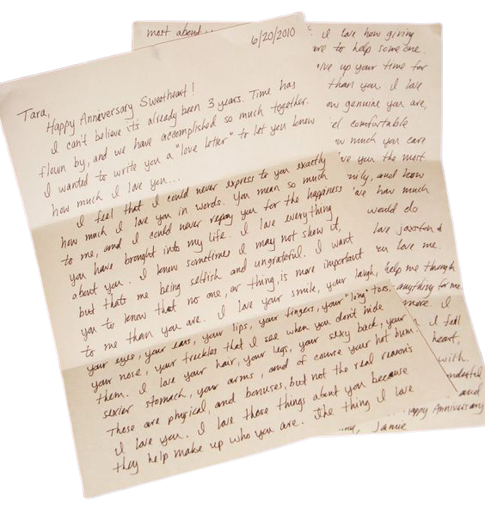 6/20/2010
Tara,
Happy Anniversary Sweetheart!
I can't believe its already been 3 years. Time has
flown by, and we have accomplished so much together.
I wanted to write you a "love letter" to let you know
how much I love you...
I feel that I could never express to you exactly
how much I love you in words. You mean so much
to me, and I could never repay you for the happiness
you have brought into my life. I love everything
about you. I know sometimes I may not show it,
but thats me being selfish and ungrateful. I want
you to know that no one, or thing, is more important
to me than you are. I love your smile, your laugh,
your eyes, your ears, your lips, your fingers, your "long" toes,
your nose, your freckles that I see when you don't hide
them. I love your hair, your legs, your sexy back, your
sexier stomach, your arms, and of course your hot bum.
These are physical, and bonuses, but not the real reasons
I love you. I love those things about you because
they help make up who you are. The thing I love
most about
I love how giving
are to help someone.
give up your time for
than you. I love
how genuine you are,
feel comfortable
how much you care
you the most
and how
how much
would do
love
you love me.
help me through
anything for me.
more. I
I feel
heart,
with
and
Happy Anniversary
Jamie